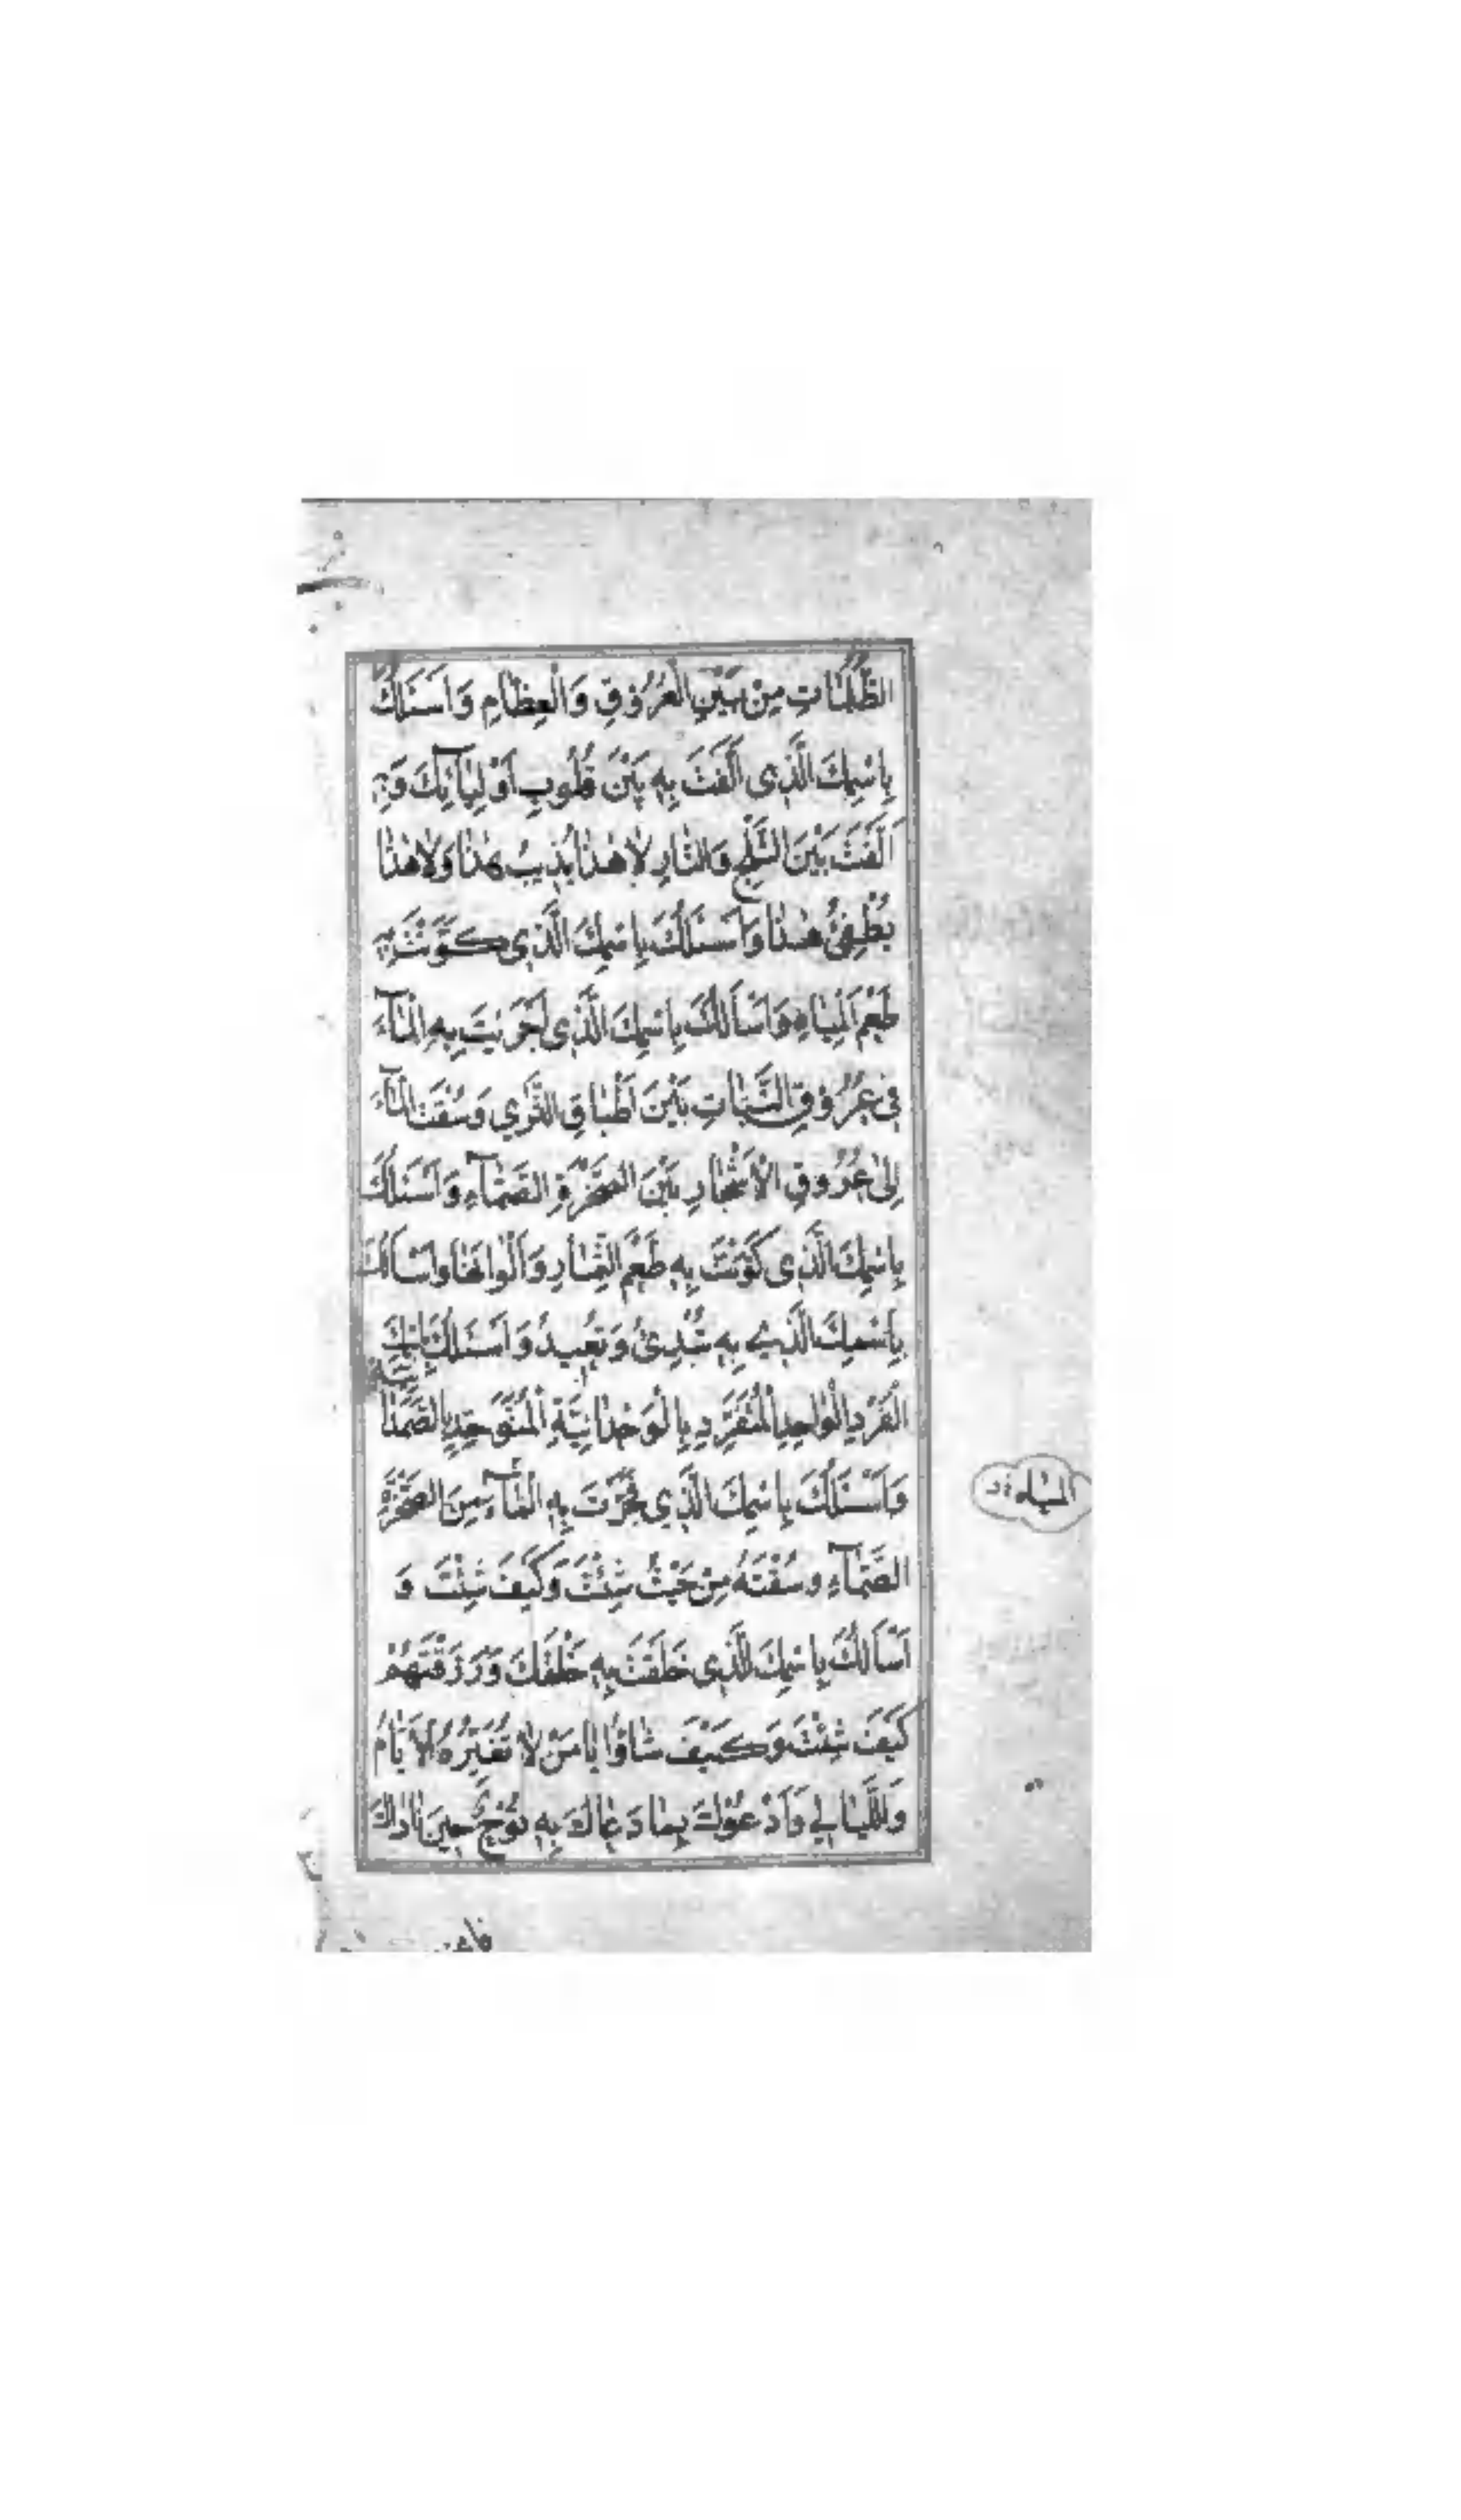 الظُّلُمَاتِ مِنْ بَيْنِ الْعُرُوقِ وَالْعِظَامِ وَاَسْئَلُكَ
بِاسْمِكَ الَّذِى اَلَّفْتَ بِهِ بَيْنَ قُلُوبِ اَوْلِيَآئِكَ وَ
اَلَّفْتَ بَيْنَ الثَّلْجِ وَالنَّارِ لَا هٰذَا يُذِيبُ هٰذَا وَلَا هٰذَا
يُطْفِئُ هٰذَا وَاَسْئَلُكَ بِاسْمِكَ الَّذِى كَوَّنْتَ بِهِ
طَعْمَ الْمِيَاهِ وَاَسْاَلُكَ بِاسْمِكَ الَّذِى اَجْرَيْتَ بِهِ الْمَآءَ
فِى عُرُوقِ النَّبَاتِ بَيْنَ اَطْبَاقِ الثَّرٰي وَسُقْتَ الْمَآءَ
اِلىٰ عُرُوقِ الْاَشْجَارِ بَيْنَ الصَّخْرَةِ الصَّمَّآءِ وَاَسْئَلُكَ
بِاسْمِكَ الَّذِى كَوَّنْتَ بِهِ طَعْمَ الثِّمَارِ وَاَلْوَانَهَا وَاَسْاَلُكَ
بِاسْمِكَ الَّذِي بِهِ تُبْدِئُ وَتُعِيدُ وَاَسْئَلُكَ بِاسْمِكَ
الْفَرْدِ الْوَاحِدِ الْمُتَفَرِّدِ بِالْوَحْدَانِيَّةِ الْمُتَوَحِّدِ بِالصَّمَدَا
وَاَسْئَلُكَ بِاسْمِكَ الَّذِى فَجَّرْتَ بِهِ الْمَآءَ مِنَ الصَّخْرَةِ
الصَّمَّآءِ وَسُقْتَهُ مِنْ حَيْثُ شِئْتَ وَكَيْفَ شِئْتَ وَ
اَسْاَلُكَ بِاسْمِكَ الَّذِى خَلَقْتَ بِهِ خَلْقَكَ وَرَزَقْتَهُمْ
كَيْفَ شِئْتَ وَكَيْفَ شَاؤُا يَا مَنْ لَا تُغَيِّرُهُ الْاَيَّامُ
وَاللَّيَالِي وَاَدْعُوكَ بِمَا دَعَاكَ بِهِ نُوْحٌ حِينَ نَادَاكَ
المياه